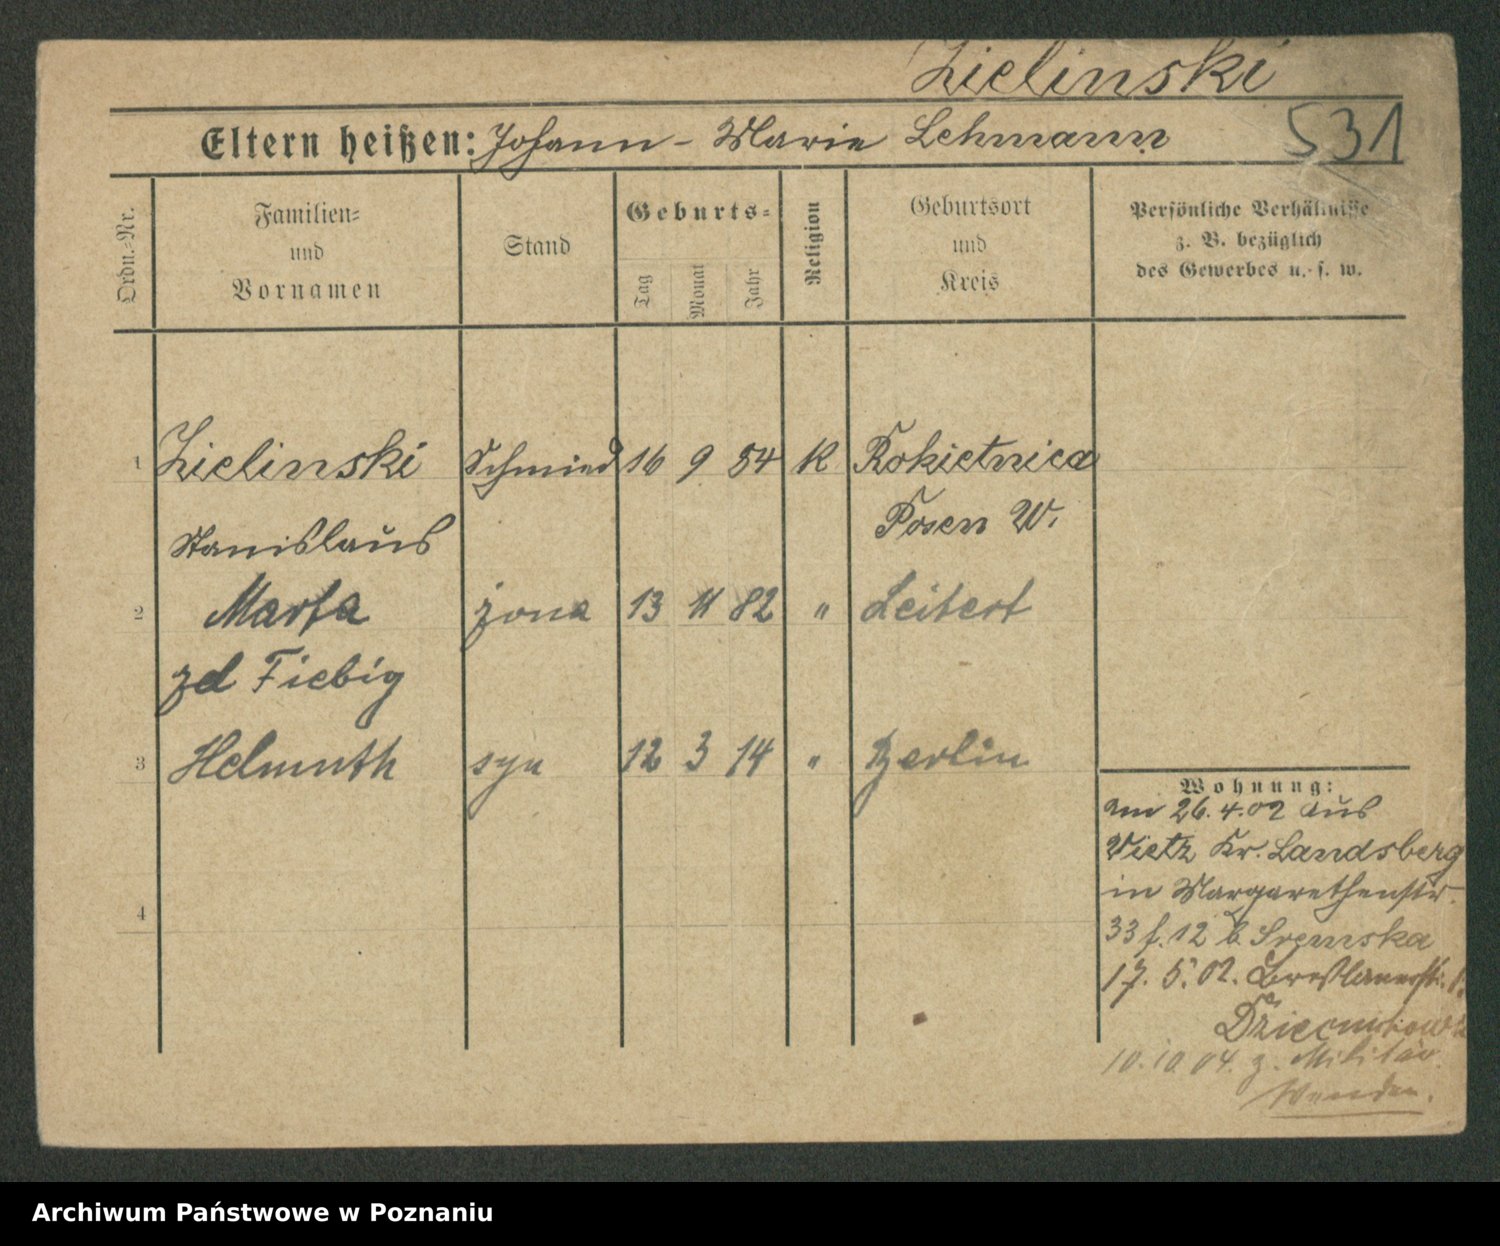 Zielinski
531
Eltern heißen: Johann - Marie Lehmann
Ordn.-Nr.
Familien-
und
Vornamen
Stand
Geburts-
Tag
Monat
Jahr
Religion
Geburtsort
und
Kreis
Persönliche Verhältnisse
z. B. bezüglich
des Gewerbes u. s. w.
1 Zielinski Schmied 16 9 84 K Rokietnica
Stanislaus Posen W.
2 Marta żona 13 11 82 " Leitert
zd Fiebig
3 Helmuth syn 12 3 14 " Berlin
4
Wohnung:
am 26.4.02 aus
Vietz Kr. Landsberg
in Margarethenstr.
33 f. 12 b Sremska
17. 5. 02. Breslauerstr.
10.10.04. z. Militär.
Wenden.